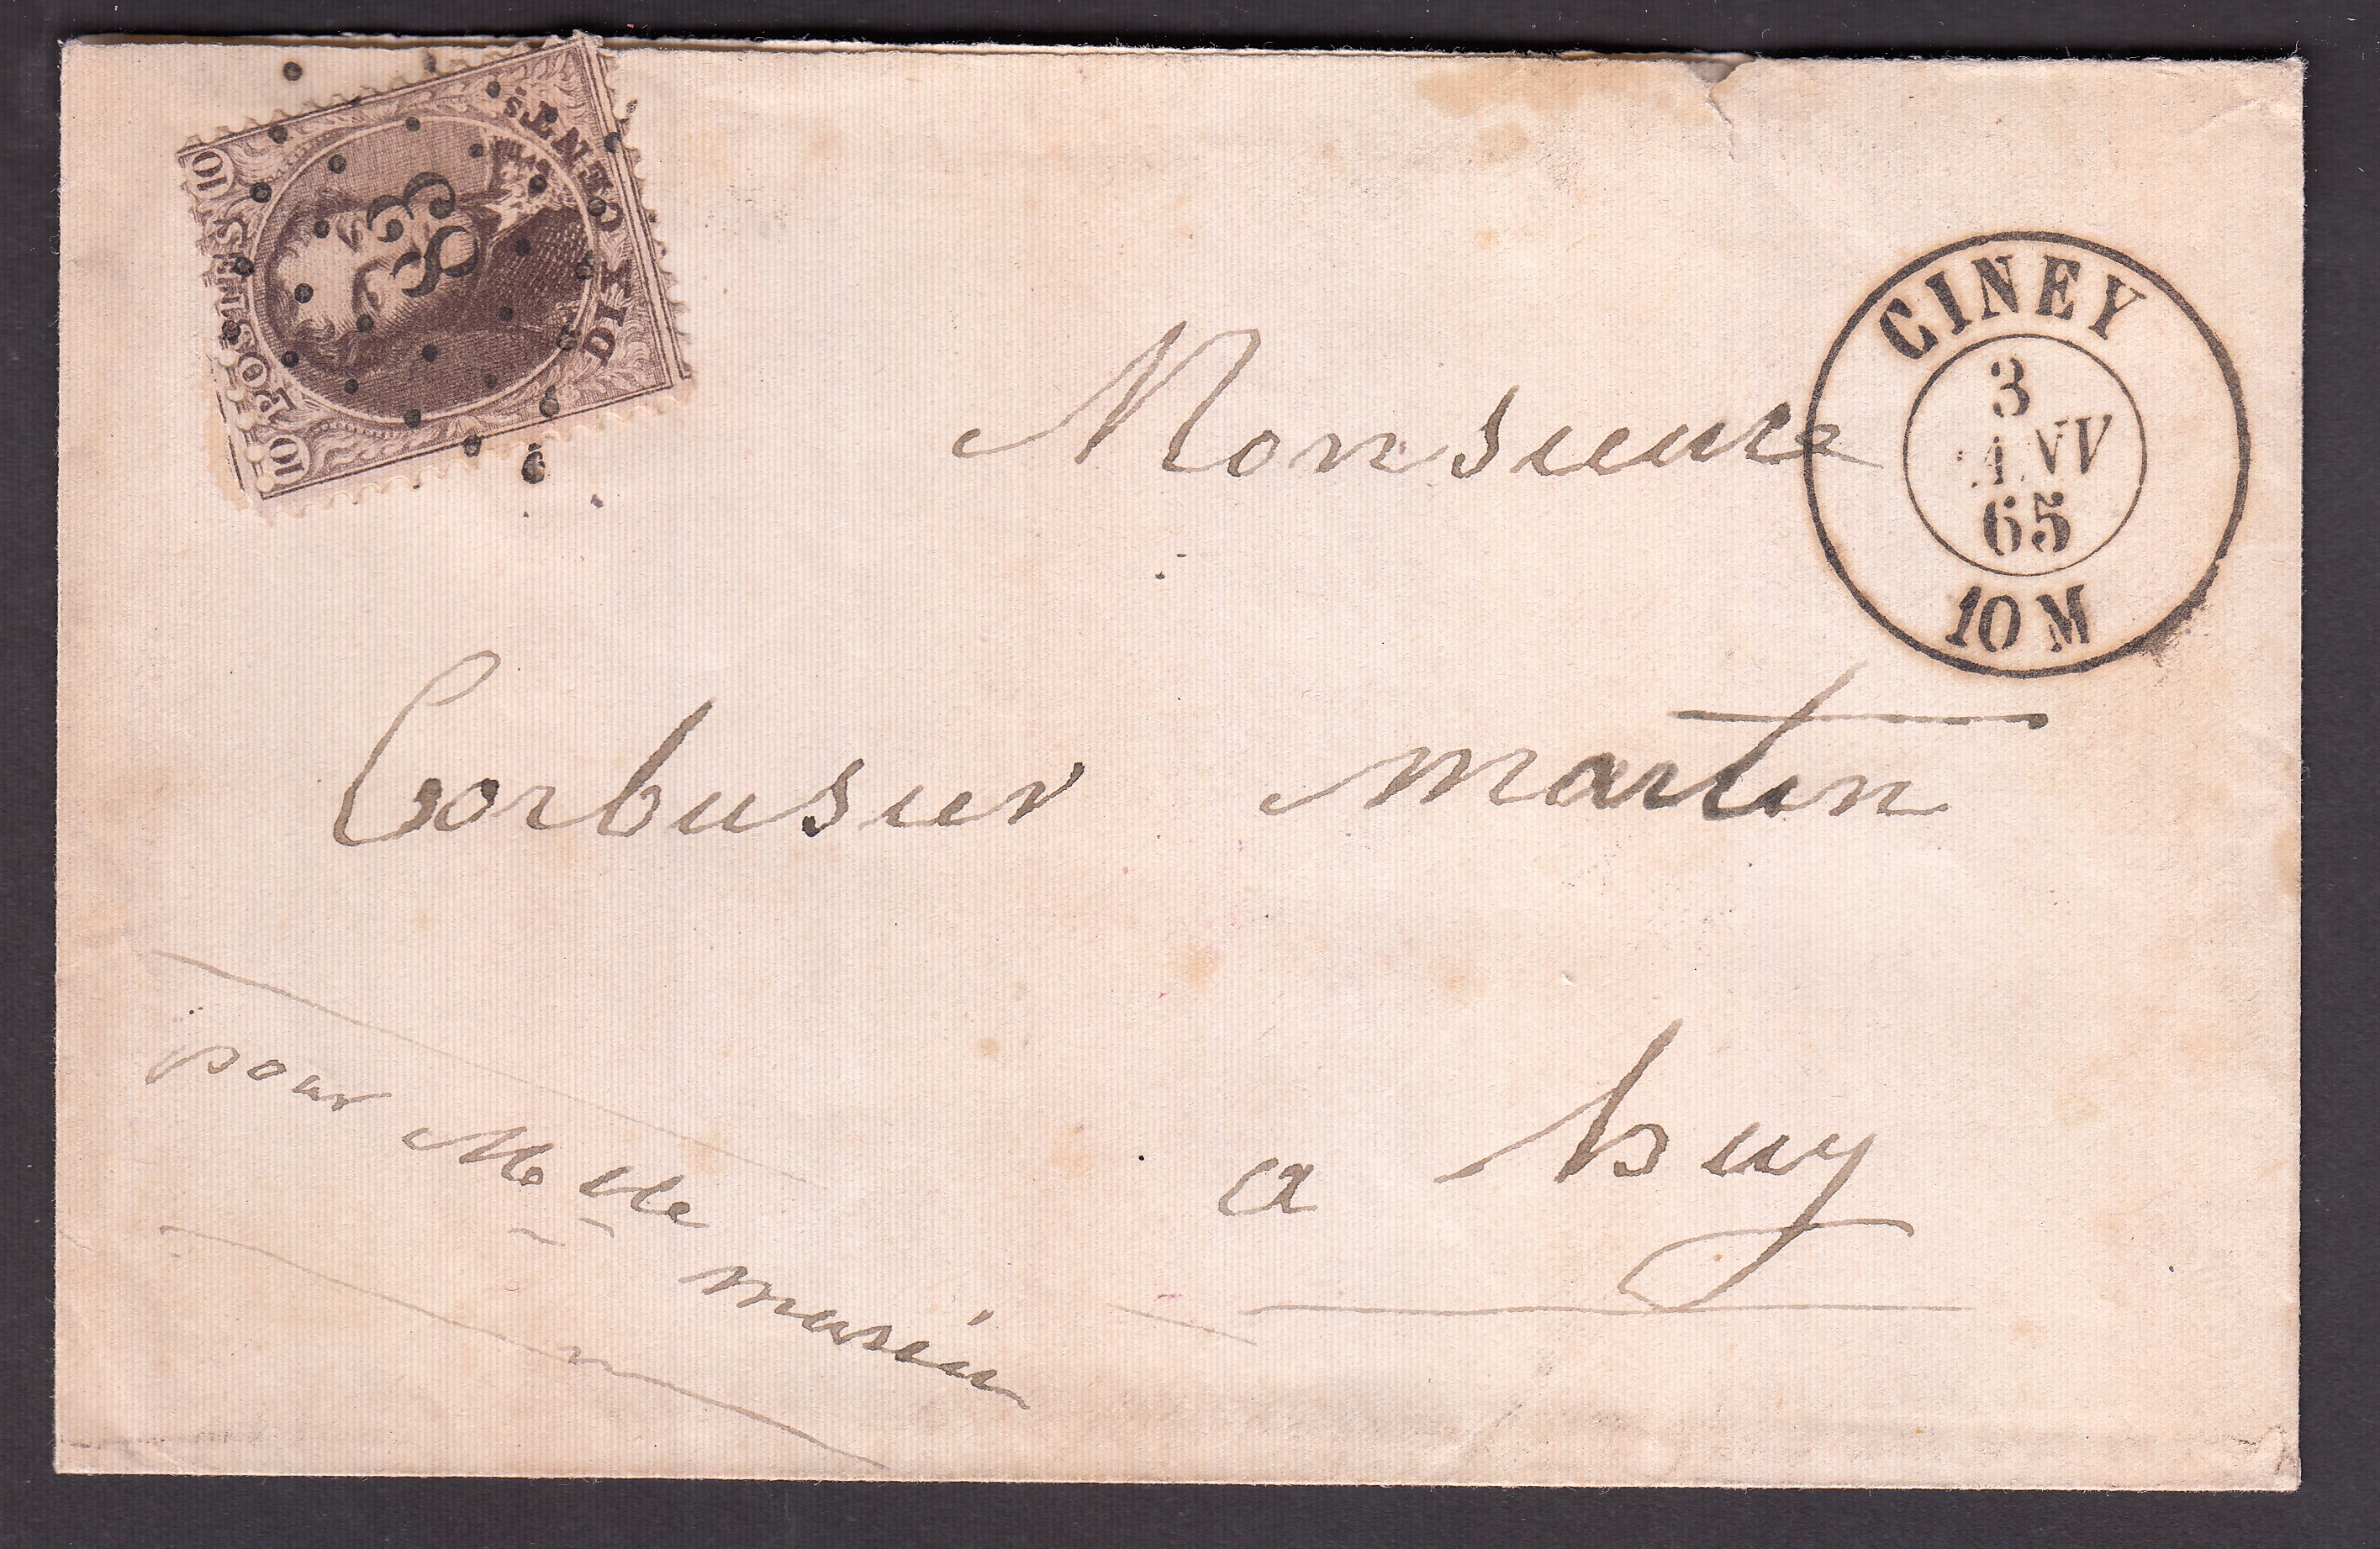 10 POSTES 10
DIX CENTS.
83
CINEY
3
65
10 M
Monsieure
Corbusier martin
a huy
pour Melle